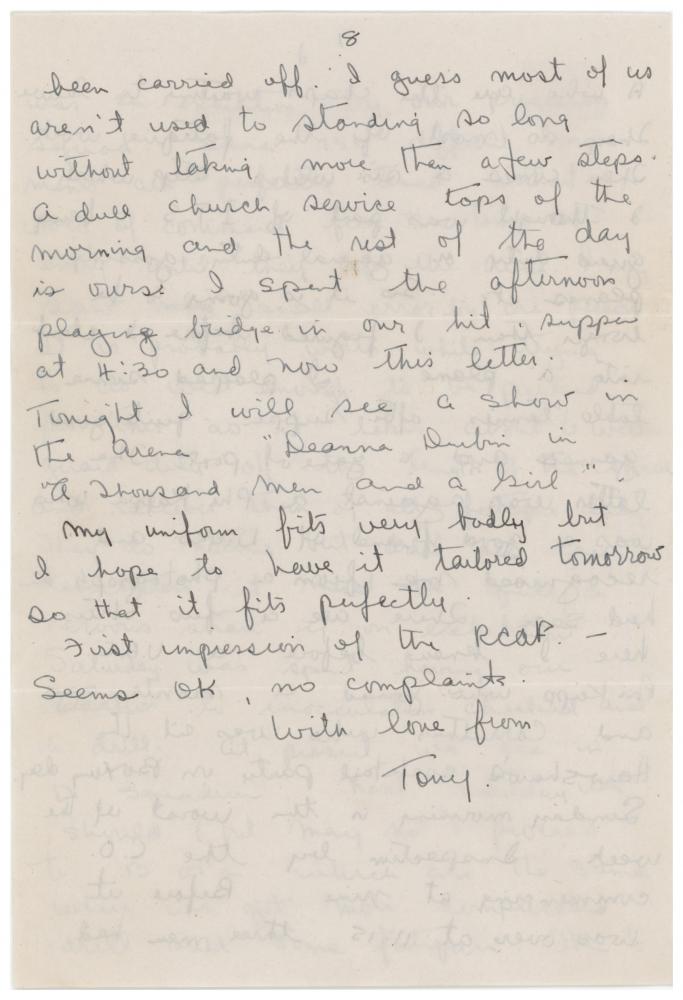 8
been carried off. I guess most of us
aren't used to standing so long
without taking more then a few steps.
A dull church service tops of the
morning and the rest of the day
is ours. I spent the afternoon
playing bridge in our hut. supper
at 4:30 and now this letter.
Tonight I will see a show in
the arena "Deanna Dubin in
"A Thousand Men and a Girl".
My uniform fits very badly but
I hope to have it tailored tomorrow
so that it fits perfectly.
First impression of the RCAF. —
Seems OK, no complaints.
With love from
Tony.